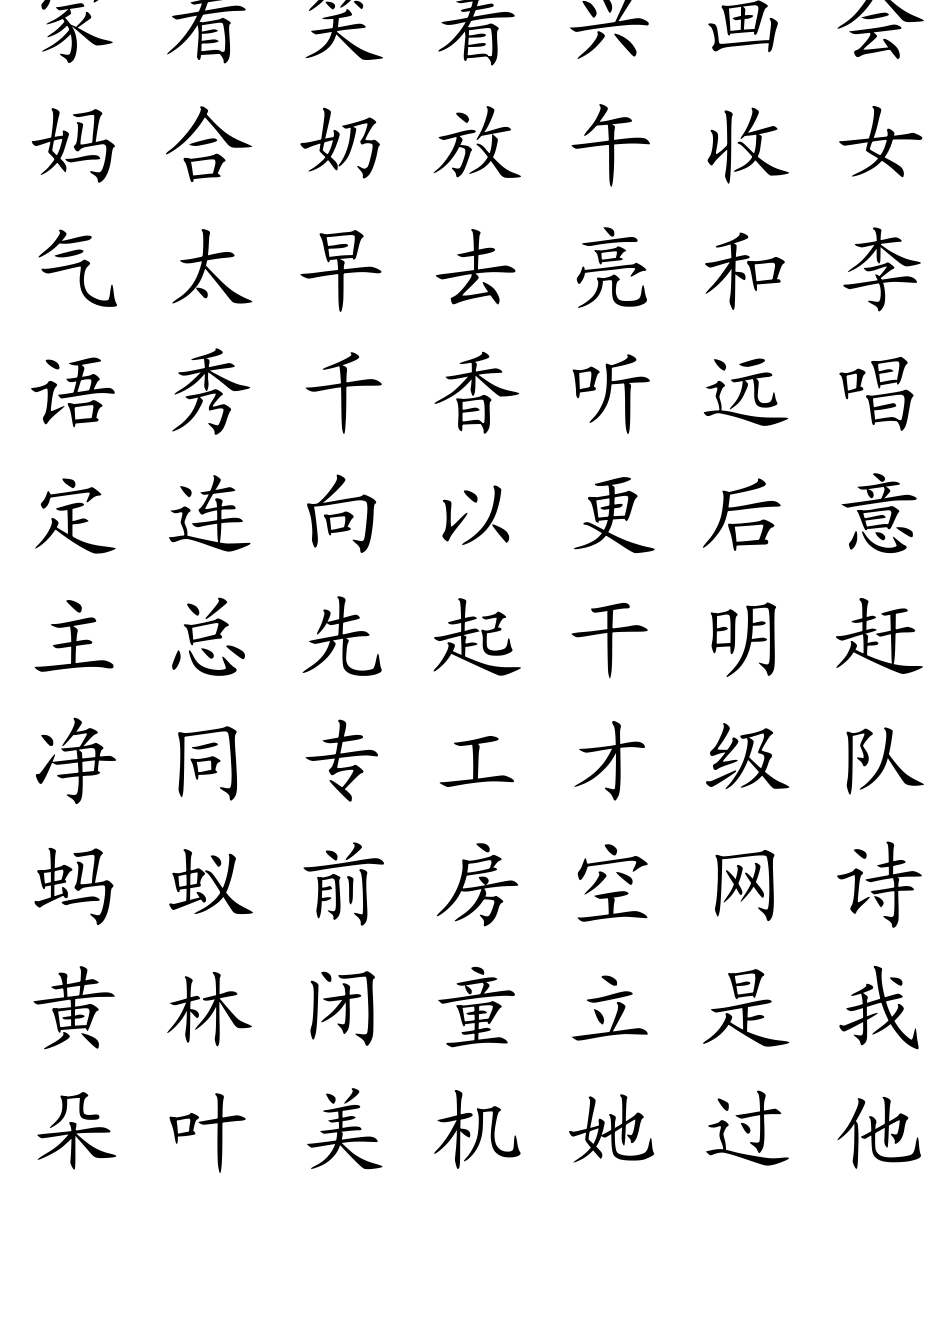 家 看 笑 着 兴 画 会
妈 合 奶 放 午 收 女
气 太 早 去 亮 和 李
语 秀 千 香 听 远 唱
定 连 向 以 更 后 意
主 总 先 起 干 明 赶
净 同 专 工 才 级 队
蚂 蚁 前 房 空 网 诗
黄 林 闭 童 立 是 我
朵 叶 美 机 她 过 他